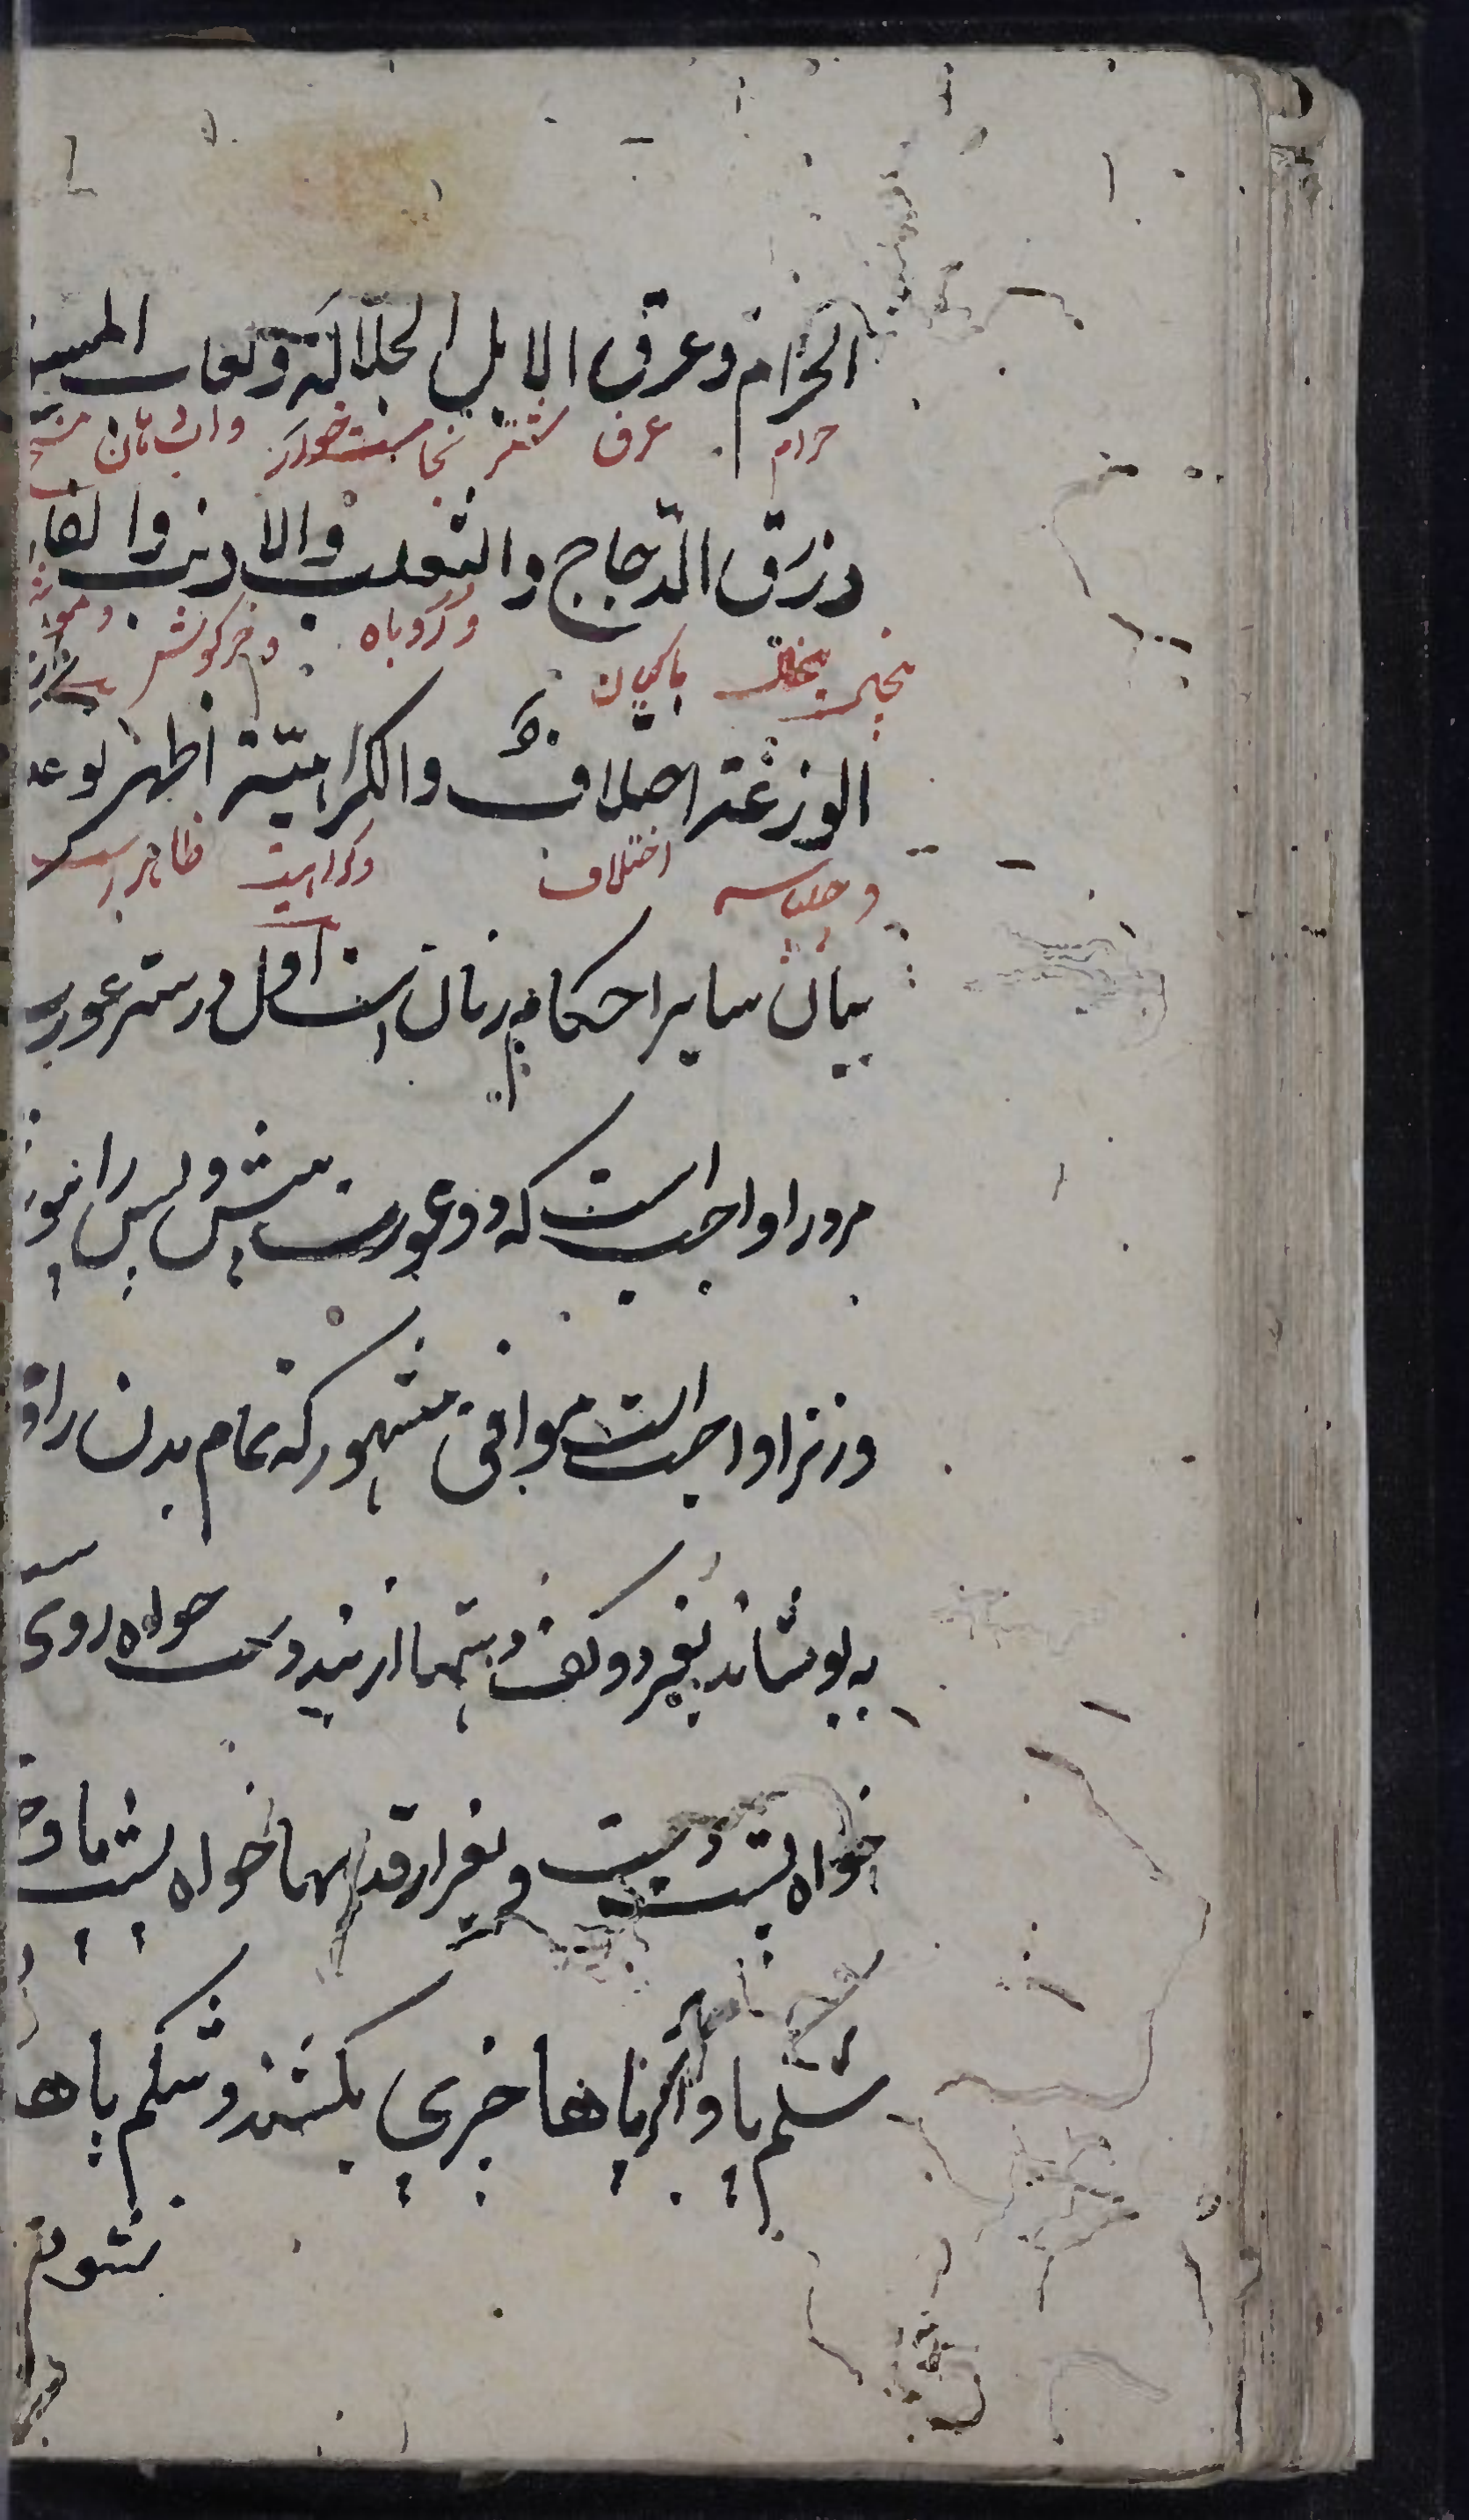 الحرام وعرق الابل الجلالة ولعاب المسو
حرام عرق شتر نجاست خور و آب دهان مسخ
وذرق الدجاج والثعلب والارنب والفار
پیخال ماکیان و روباه و خرگوش و موش
الوزغة اختلاف والكراهية اظهر نوع
و چلپاسه اختلاف و کراهیت ظاهر است
بیان سایر احکام زنان است اول در ستر عورت
مرد را واجب است که دو عورت پیش و پس را بپو
و زنرا واجب است موافق مشهور که تمام بدن را
بپوشاند بغیر دو کف دستها از بند دست خواه روی
خواه پشت دست و بغیر از قدمها خواه پشت پا و خو
شکم پا و اگر پاها چیزی بکشند و شکم پاها
نشود